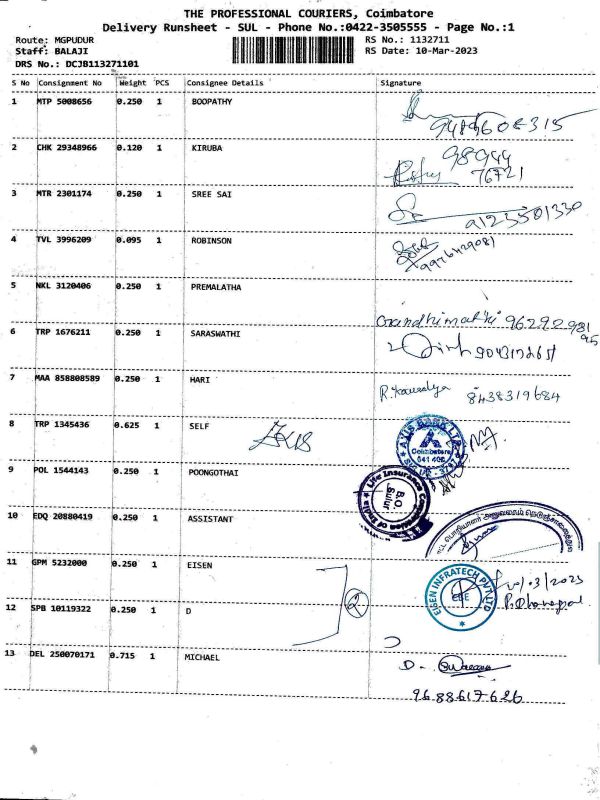 THE PROFESSIONAL COURIERS, Coimbatore
Delivery Runsheet - SUL - Phone No.:0422-3505555 - Page No.:1
Route: MGPUDUR RS No.: 1132711
Staff: BALAJI RS Date: 10-Mar-2023
DRS No.: DCJB113271101
S No Consignment No Weight PCS Consignee Details Signature
1 MTP 5008656 0.250 1 BOOPATHY
2 CHK 29348966 0.120 1 KIRUBA
98944
76721
3 MTR 2301174 0.250 1 SREE SAI
9123501330
4 TVL 3996209 0.095 1 ROBINSON
5 NKL 3120406 0.250 1 PREMALATHA
6 TRP 1676211 0.250 1 SARASWATHI
7 MAA 858808589 0.250 1 HARI
R. Kousalya 8438319684
8 TRP 1345436 0.625 1 SELF
AXIS BANK LTD
Coimbatore
641 402
9 POL 1544143 0.250 1 POONGOTHAI
Life Insurance Corporation of India
B.O.
Sulur
10 EDQ 20880419 0.250 1 ASSISTANT
11 GPM 5232000 0.250 1 EISEN
2
EIGEN INFRATECH PVT LTD
CBE
12 SPB 10119322 0.250 1 D
13 DEL 250070171 0.715 1 MICHAEL
9688617626